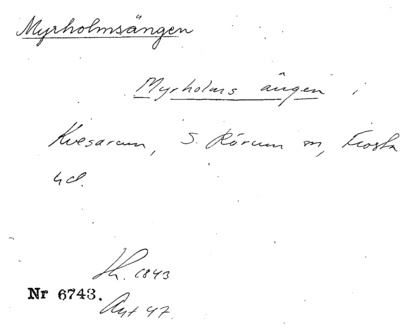 Myrholmsängen
Myrholms ängen i
Kvesarum, S. Rörum sn, Frosta
hd.
Sk. 1843
Nr 6743.
Akt 47.